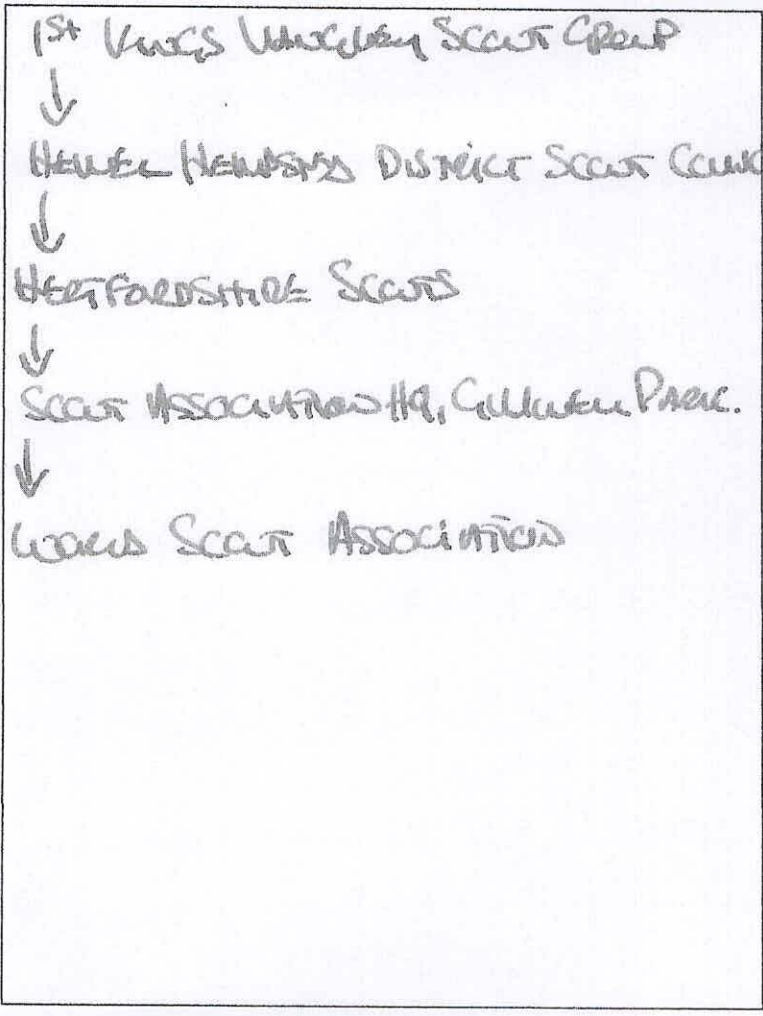 1st Kings Langley Scout Group
↓
Hemel Hempstead District Scout Counc
↓
Hertfordshire Scouts
↓
Scout Association HQ, Gilwell Park.
↓
World Scout Association